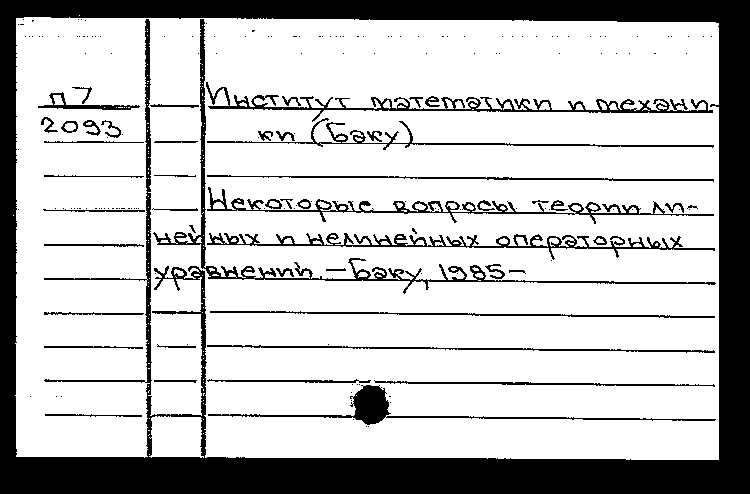 П7
2093
Институт математики и механи-
ки (Баку)
Некоторые вопросы теории ли-
нейных и нелинейных операторных
уравнений. — Баку, 1985 —